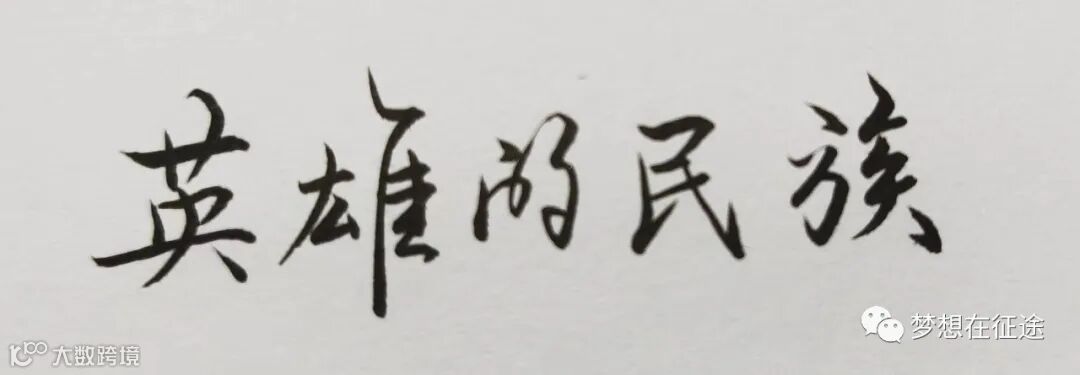 英雄的民族
梦想在征途
大数跨境